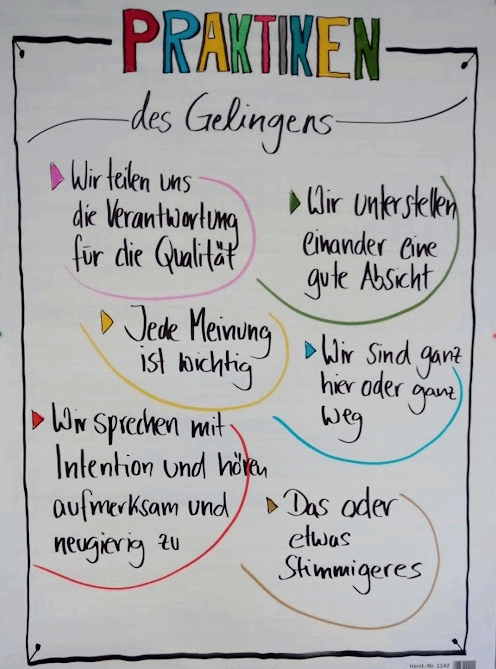 PRAKTIKEN
des Gelingens
Wir teilen uns
die Verantwortung
für die Qualität
Wir unterstellen
einander eine
gute Absicht
Jede Meinung
ist wichtig
Wir sind ganz
hier oder ganz
weg
Wir sprechen mit
Intention und hören
aufmerksam und
neugierig zu
Das oder
etwas
Stimmigeres